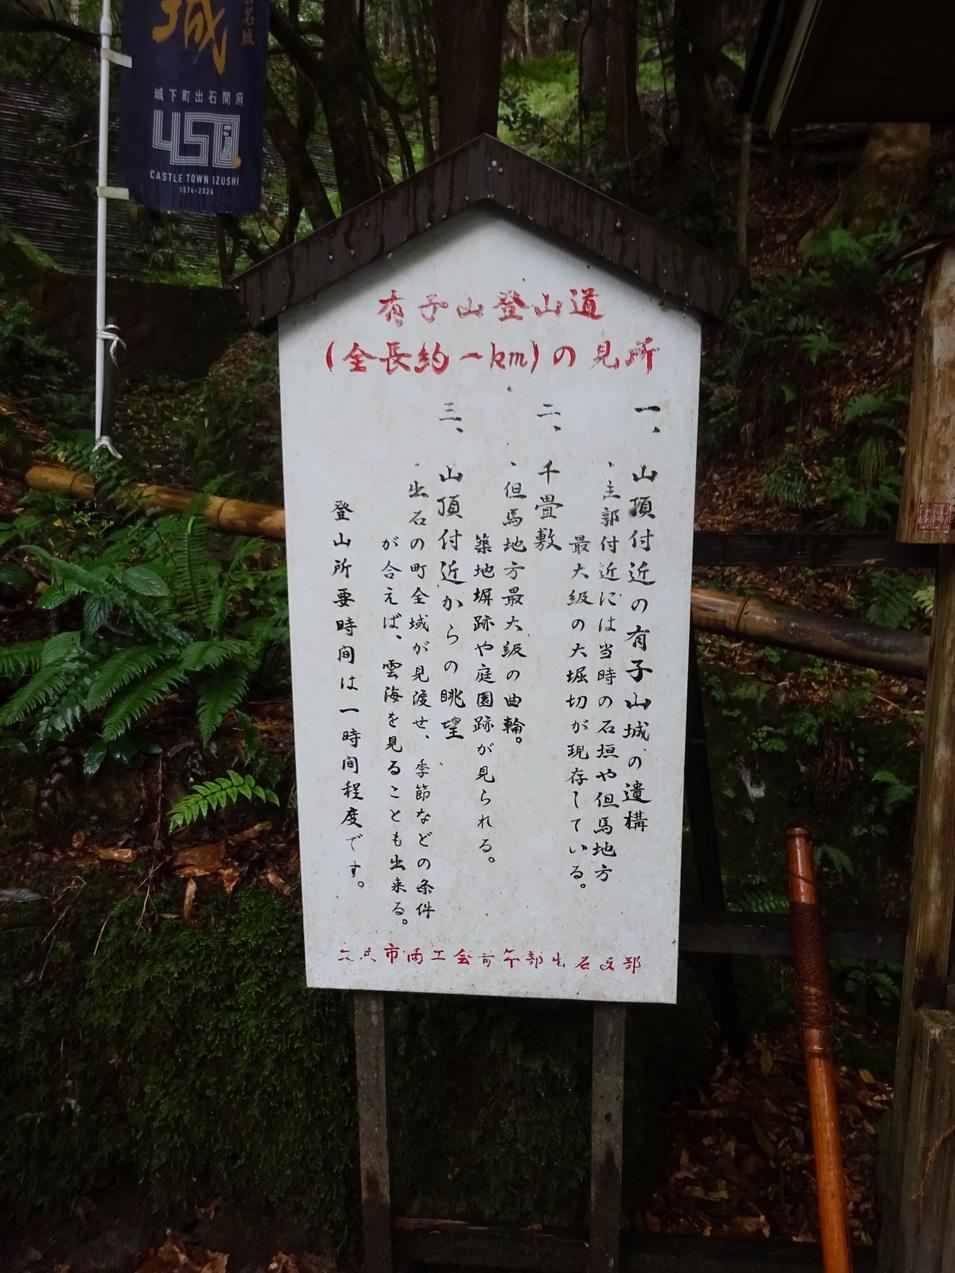 城
城下町出石開府
450
CASTLE TOWN IZUSHI
1574-2024
有子山登山道
(全長約一km)の見所
一、山頂付近の有子山城の遺構
・主郭付近には当時の石垣や但馬地方
最大級の大堀切が現存している。
二、千畳敷
・但馬地方最大級の曲輪。
築地塀跡や庭園跡が見られる。
三、山頂付近からの眺望
・出石の町全域が見渡せ、季節などの条件
が合えば、雲海を見ることも出来る。
登山所要時間は一時間程度です。
市商工会青年部出石支部